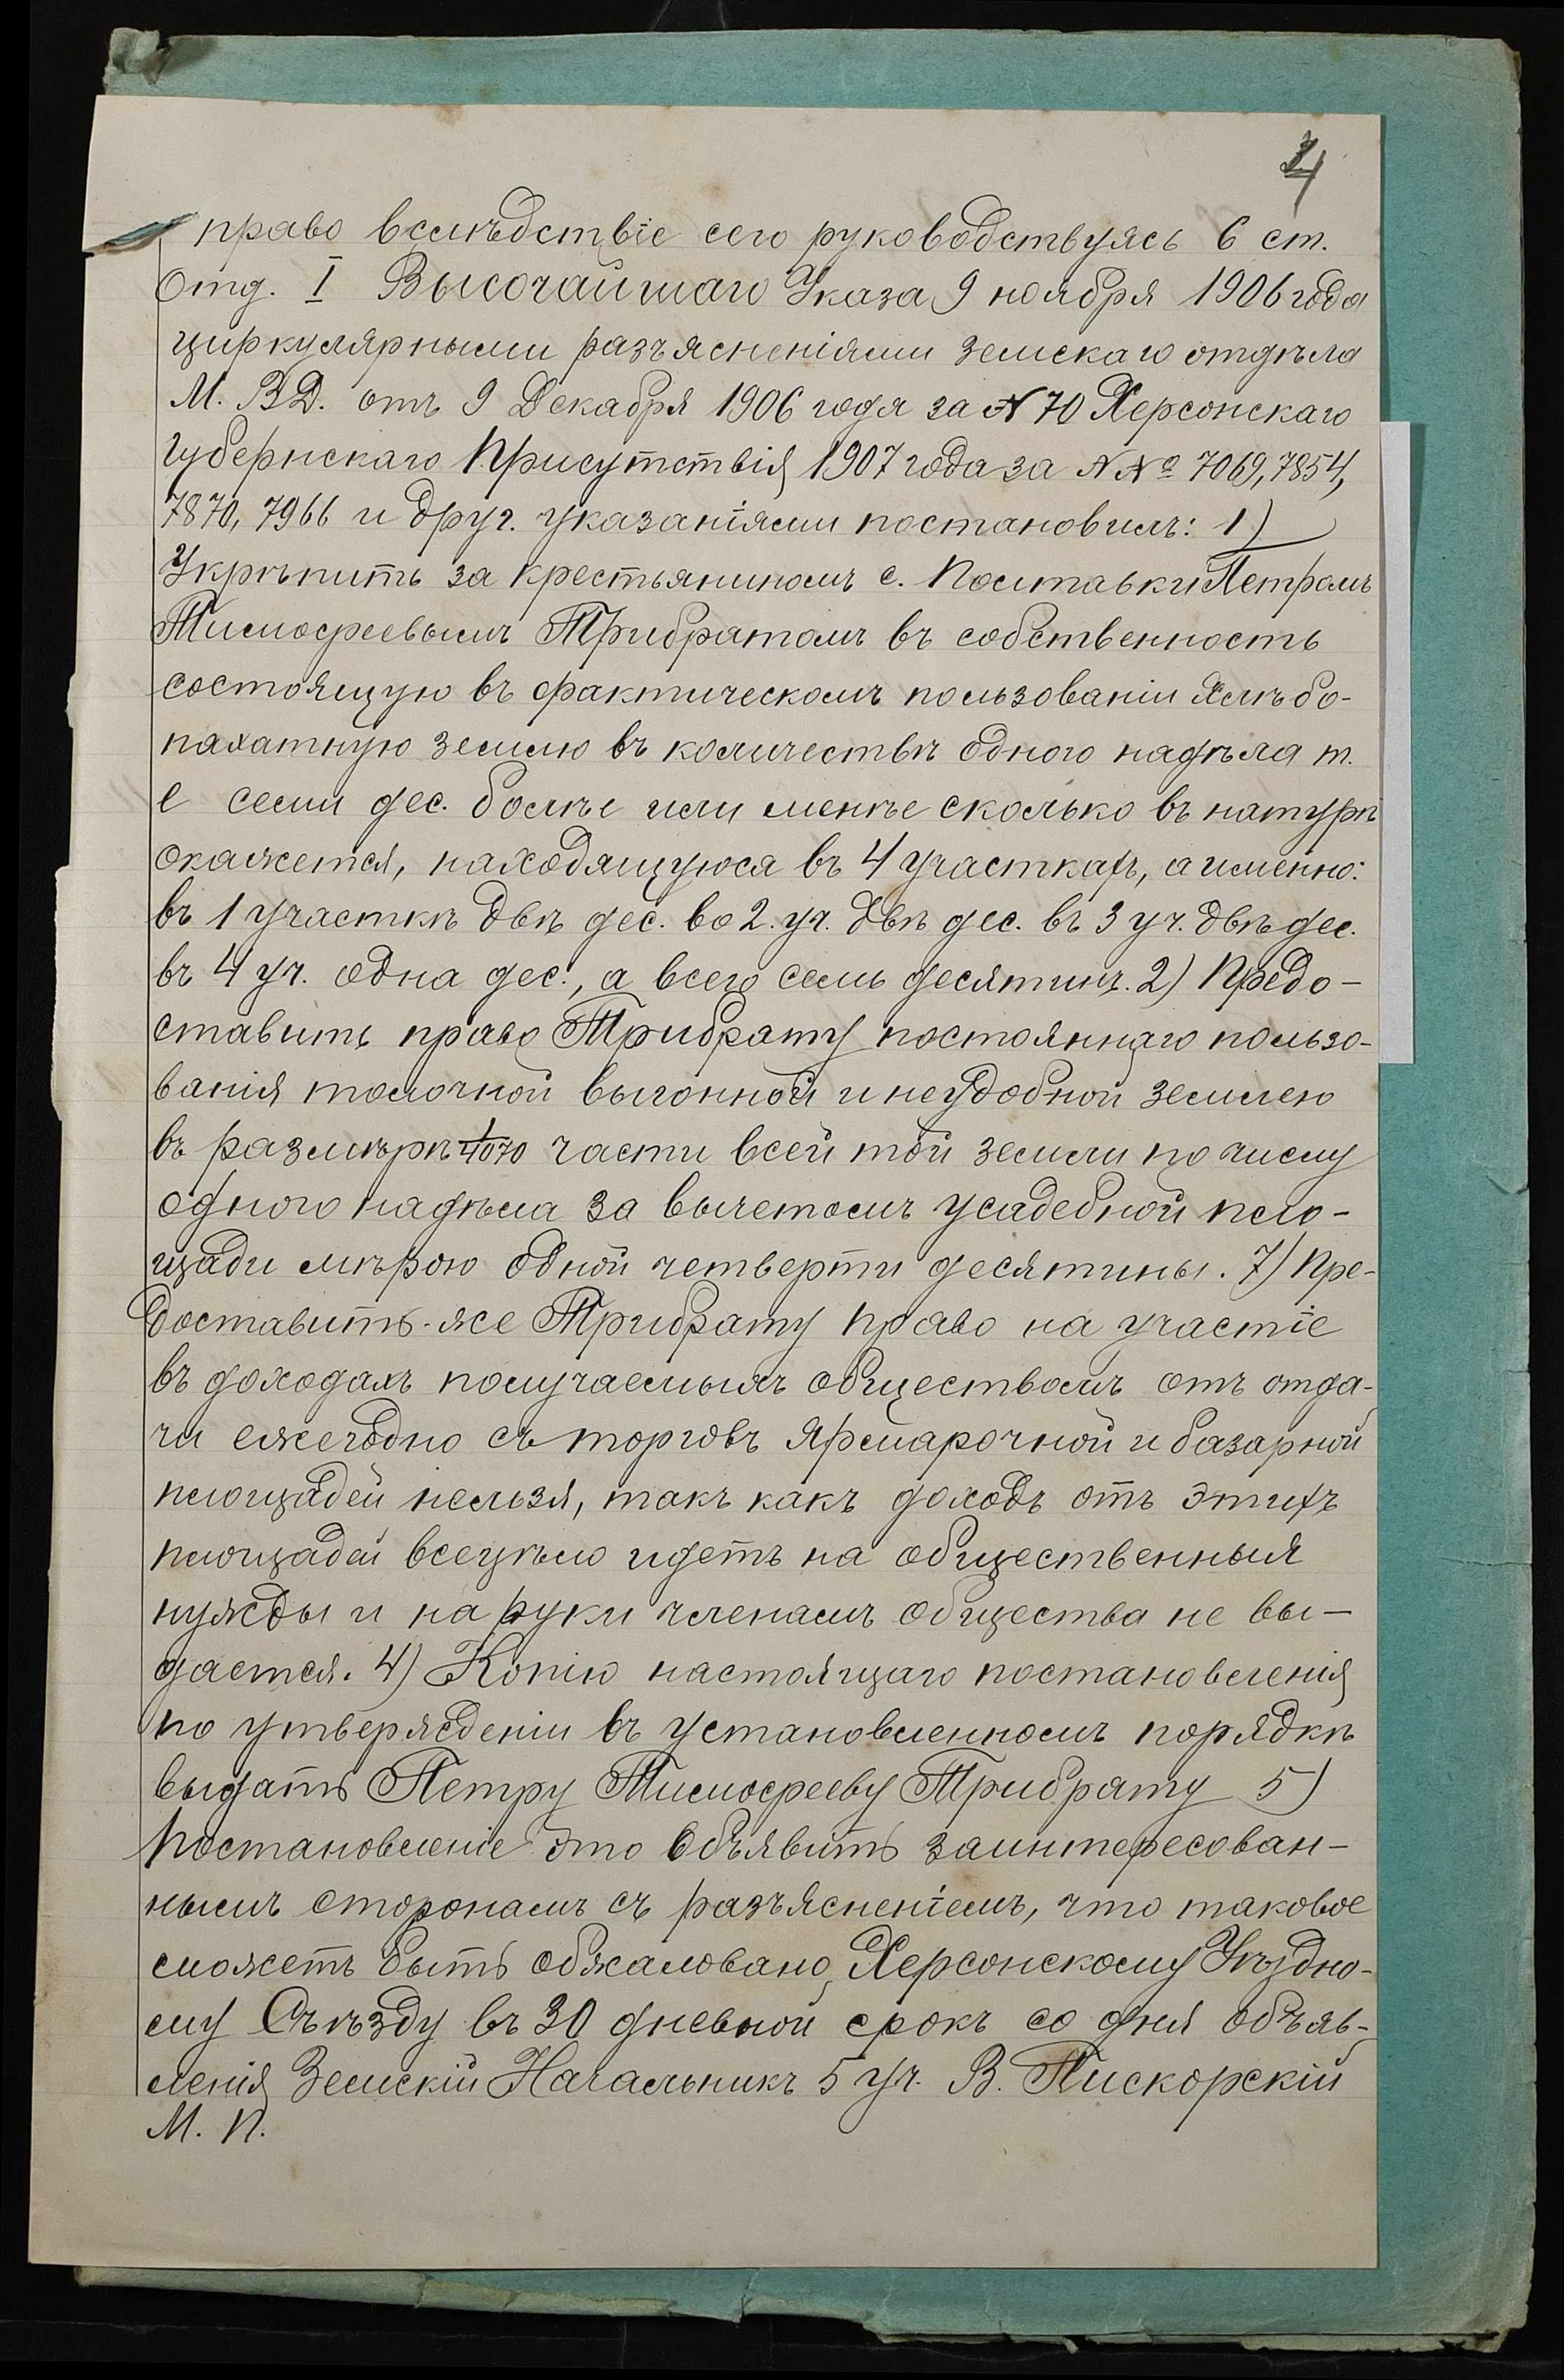 4
право вслѣдствіе сего руководствуясь 6 ст.
Отд. I Высочайшаго Указа 9 ноября 1906 года
циркулярными разъясненіями земскаго отдѣла
М. В.Д. отъ 9 Декабря 1906 года за № 70 Херсонскаго
Губернскаго Присутствія 1907 года за №№ 7069, 7854,
7870, 7966 и друг. указаніями постановилъ: 1)
Укрѣпить за крестьяниномъ с. Полтавки Петромъ
Тимофеевымъ Трибратомъ въ собственность
состоящую въ фактическомъ пользованіи хлѣбо-
пахатную землю въ количествѣ одного надѣла т.
е семи дес. болѣе или менѣе сколько въ натурѣ
окажется, находящуюся въ 4 участкахъ, а именно:
въ 1 участкѣ двѣ дес. во 2. уч. двѣ дес. въ 3 уч. двѣ дес.
въ 4 уч. одна дес., а всего семь десятинъ. 2) Предо-
ставить право Трибрату постояннаго пользо-
ванія толочной выгонной и неудобной землею
въ размѣрѣ 1/1070 части всей той земли по числу
одного надѣла за вычетомъ усадебной пло-
щади мѣрою одной четверти десятины. 7) Пре-
доставить-же Трибрату право на участіе
въ доходахъ получаемыхъ обществомъ отъ отда-
чи ежегодно съ торговъ ярмарочной и базарной
площадей нельзя, такъ какъ доходъ отъ этихъ
площадей всецѣло идетъ на общественныя
нужды и на руки членамъ общества не вы-
дается. 4) Копію настоящаго постановленія
по утвержденіи въ установленномъ порядкѣ
выдать Петру Тимофееву Трибрату 5)
Постановленіе это объявить заинтересован-
нымъ сторонамъ съ разъясненіемъ, что таковое
сможетъ быть обжаловано Херсонскому Уѣздно-
му Съѣзду въ 30 дневной срокъ со дня объяв-
ленія Земскій Начальникъ 5 уч. В. Пискорскій
М. П.